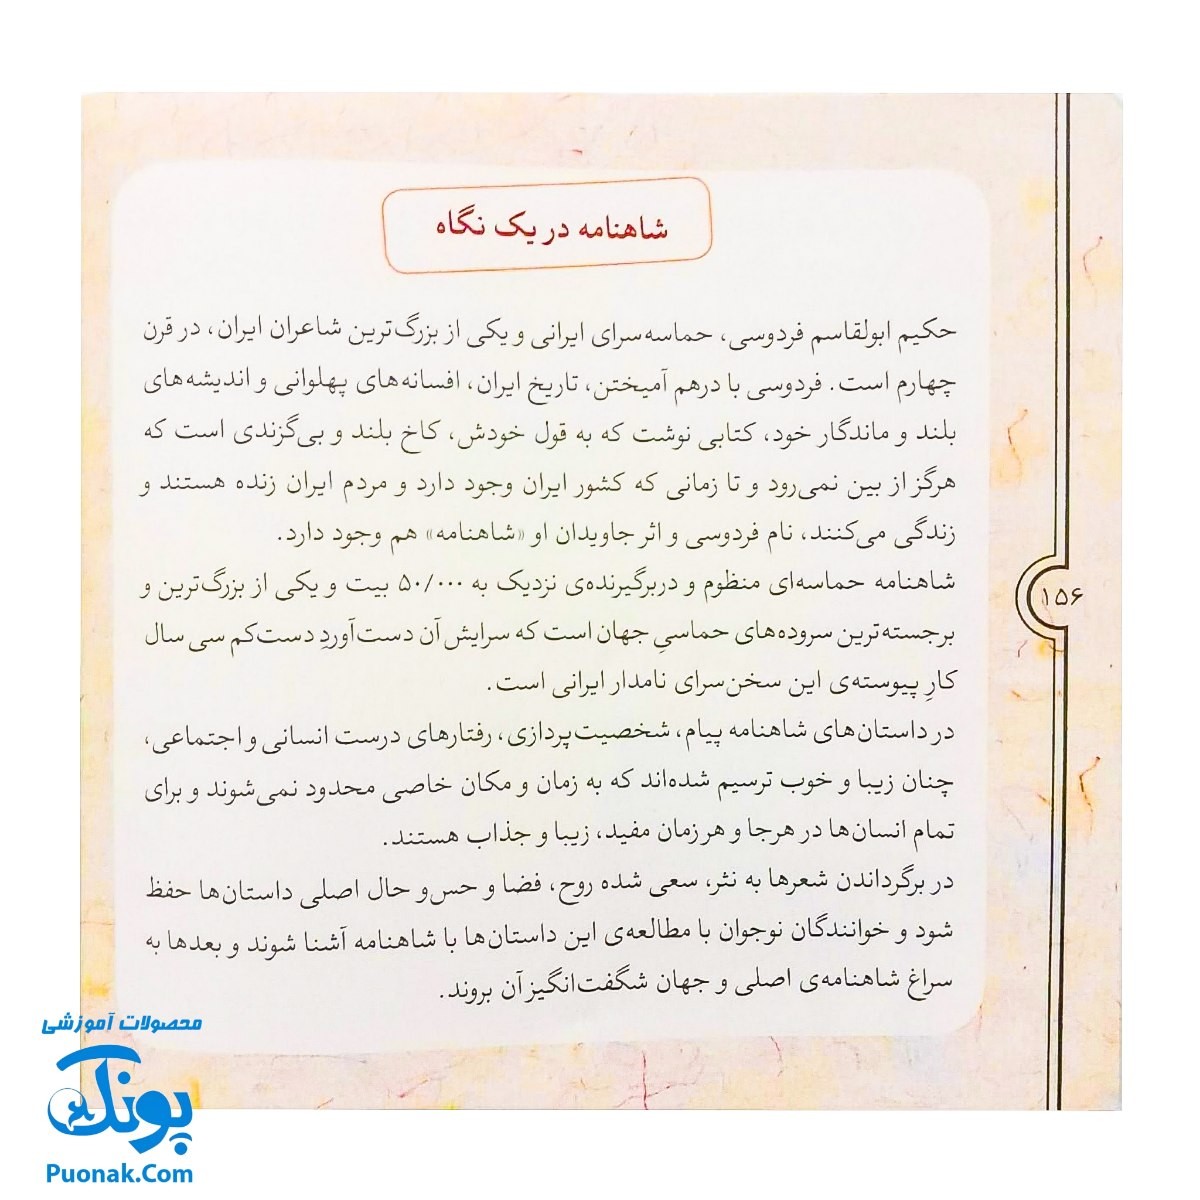 شاهنامه در یک نگاه
حکیم ابولقاسم فردوسی، حماسه‌سرای ایرانی و یکی از بزرگ‌ترین شاعران ایران، در قرن
چهارم است. فردوسی با درهم آمیختن، تاریخ ایران، افسانه‌های پهلوانی و اندیشه‌های
بلند و ماندگار خود، کتابی نوشت که به قول خودش، کاخ بلند و بی‌گزندی است که
هرگز از بین نمی‌رود و تا زمانی که کشور ایران وجود دارد و مردم ایران زنده هستند و
زندگی می‌کنند، نام فردوسی و اثر جاویدان او «شاهنامه» هم وجود دارد.
شاهنامه حماسه‌ای منظوم و دربرگیرنده‌ی نزدیک به ۵۰/۰۰۰ بیت و یکی از بزرگ‌ترین و
برجسته‌ترین سروده‌های حماسیِ جهان است که سرایش آن دست‌آوردِ دست‌کم سی سال
کارِ پیوسته‌ی این سخن‌سرای نامدار ایرانی است.
در داستان‌های شاهنامه پیام، شخصیت‌پردازی، رفتارهای درست انسانی و اجتماعی،
چنان زیبا و خوب ترسیم شده‌اند که به زمان و مکان خاصی محدود نمی‌شوند و برای
تمام انسان‌ها در هرجا و هر زمان مفید، زیبا و جذاب هستند.
در برگرداندن شعرها به نثر، سعی شده روح، فضا و حس‌و حال اصلی داستان‌ها حفظ
شود و خوانندگان نوجوان با مطالعه‌ی این داستان‌ها با شاهنامه آشنا شوند و بعدها به
سراغ شاهنامه‌ی اصلی و جهان شگفت‌انگیز آن بروند.
۱۵۶
محصولات آموزشی
پونک
Puonak.Com